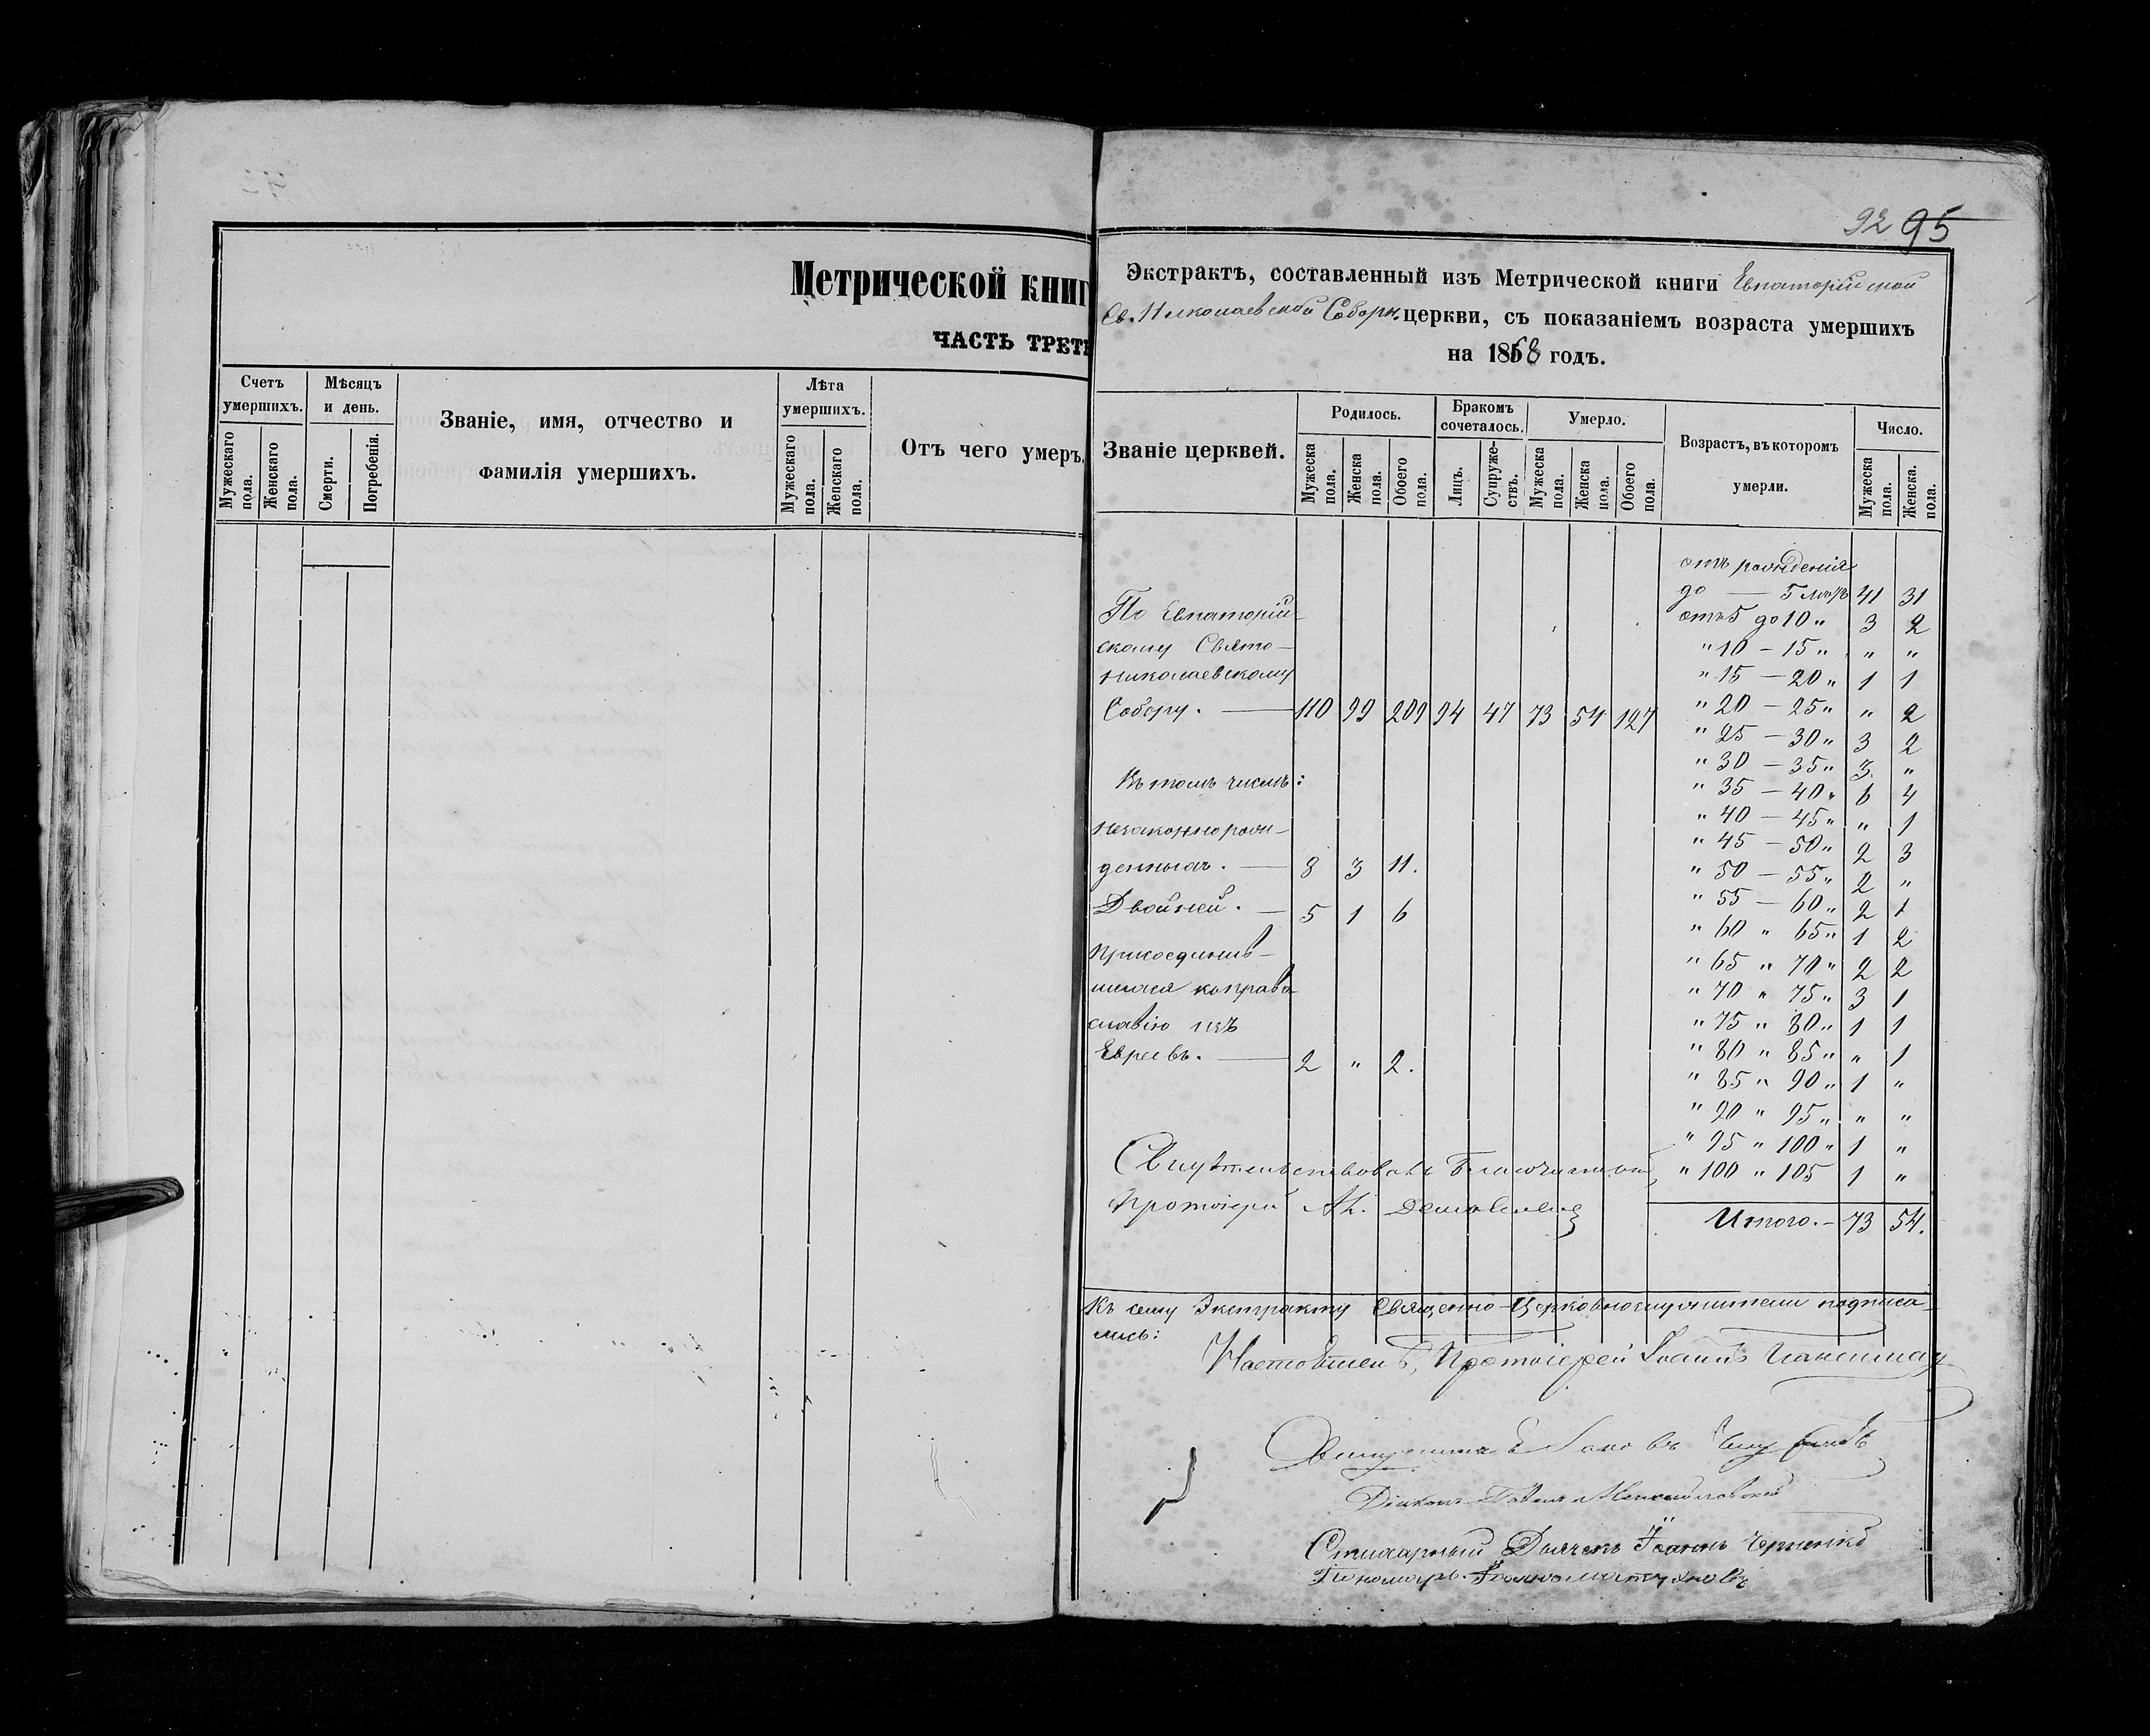 Метрической книг
ЧАСТЬ ТРЕТЬ
Счетъ умершихъ.
Мужескаго пола.
Женскаго пола.
Мѣсяцъ и день.
Смерти.
Погребенія.
Званіе, имя, отчество и
фамилія умершихъ.
Лѣта умершихъ.
Мужескаго пола.
Женскаго пола.
Отъ чего умеръ.
92 95
Экстрактъ, составленный изъ Метрической книги Евпаторійской
Св. Николаевской Соборн. церкви, съ показаніемъ возраста умершихъ
на 1868 годъ.
Званіе церквей.
Родилось.
Мужеска пола.
Женска пола.
Обоего пола.
Бракомъ сочеталось.
Лицъ.
Супружествъ.
Умерло.
Мужеска пола.
Женска пола.
Обоего пола.
Возрастъ, въ которомъ
умерли.
Число.
Мужеска пола.
Женска. пола.
По Евпаторій-
скому Свято-
николаевскому
Собору. — 110 99 209 94 47 73 54 127
Въ томъ числѣ:
незаконнорож-
денныхъ. — 8 3 11.
Двойней. — 5 1 6
Присоединив-
шихся къ право-
славію изъ
Евреевъ. — 2 " 2.
отъ рожденія
до — 5 лѣтъ 41 31
отъ 5 до 10 " 3 2
" 10 — 15 " " "
" 15 — 20 " 1 1
" 20 — 25 " " 2
" 25 — 30 " 3 2
" 30 — 35 " 3 "
" 35 — 40 " 6 4
" 40 — 45 " " 1
" 45 — 50 " 2 3
" 50 — 55 " 2 "
" 55 — 60 " 2 1
" 60 " 65 " 1 2
" 65 " 70 " 2 2
" 70 " 75 " 3 1
" 75 " 80 " 1 1
" 80 " 85 " " 1
" 85 " 90 " 1 "
" 90 " 95 " " "
" 95 " 100 " 1 "
" 100 " 105 1 "
Итого. — 73 54.
Свидѣтельствовалъ Благочинный
Протоіерей
Къ сему Экстракту Священно-Церковнослужители подписа-
лись:
Настоятель, Протоіерей Іоаннъ
Священникъ
Діаконъ
Стихарный Дьячекъ Іоаннъ
Пономарь